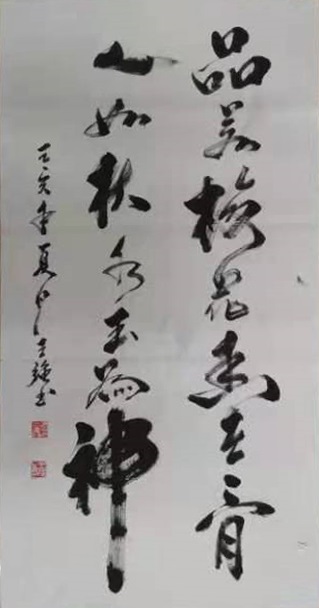 品若梅花香在骨
心如秋水玉为神
年夏
书